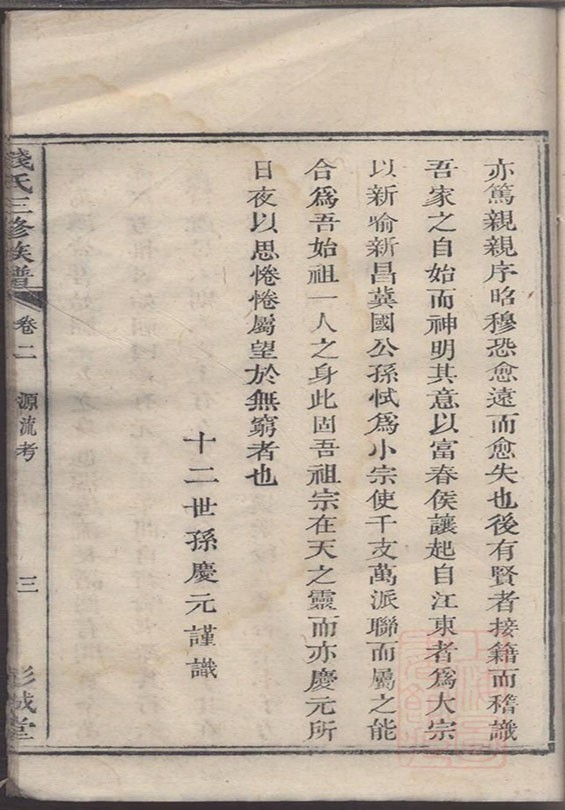 亦篤親親序昭穆恐愈遠而愈失也後有賢者接籍而稽識
吾家之自始而神明其意以富春侯讓起自江東者爲大宗
以新喻新昌冀國公孫忒爲小宗使千支萬派聯而屬之能
合爲吾始祖一人之身此固吾祖宗在天之靈而亦慶元所
日夜以思惓惓屬望於無窮者也
十二世孫慶元謹識
錢氏三修族譜
卷二
源流考
三
彭城堂